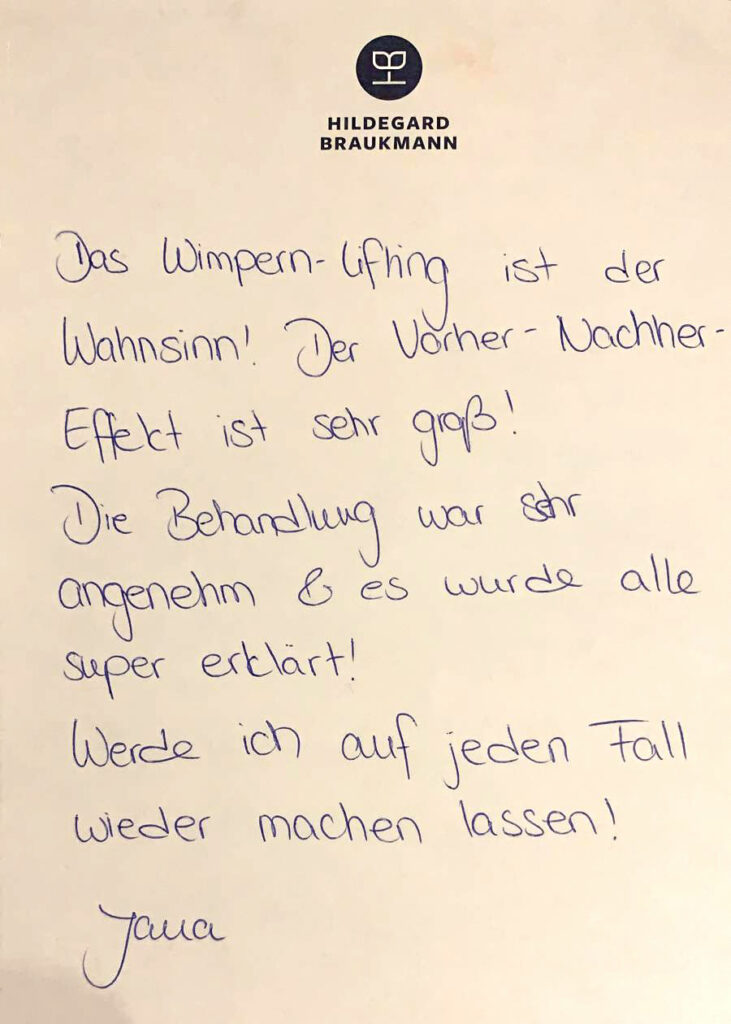 HILDEGARD
BRAUKMANN
Das Wimpern-lifting ist der
Wahnsinn! Der Vorher-Nachher-
Effekt ist sehr groß!
Die Behandlung war sehr
angenehm & es wurde alle
super erklärt!
Werde ich auf jeden Fall
wieder machen lassen!
Jana